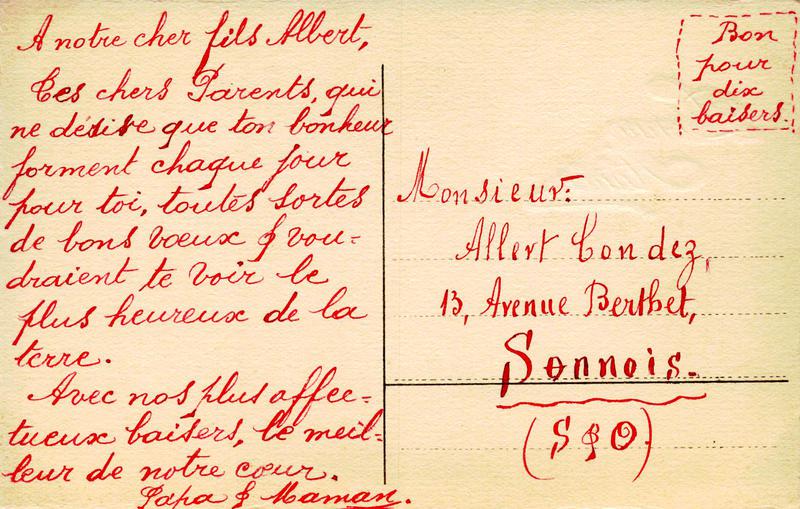 A notre cher fils Albert,
Tes chers Parents, qui
ne désire que ton bonheur
forment chaque jour
pour toi, toutes sortes
de bons vœux & vou=
draient te voir le
plus heureux de la
terre.
Avec nos plus affec=
tueux baisers, le meil=
leur de notre cœur.
Papa & Maman.
Bon
pour
dix
baisers.
Monsieur:
Albert Condez,
13, Avenue Berthet,
Sannois.
(S & O)